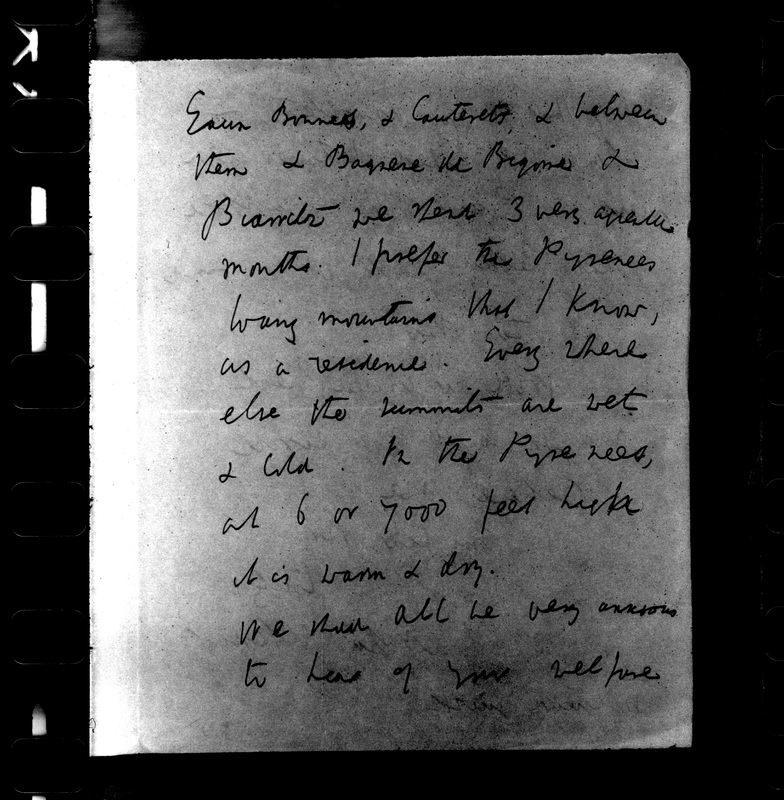 Eaux Bonnes, & Cauterets, & between
them & Bagnere de Bigorre &
Biarritz we spent 3 very agreeable
months. I prefer the Pyrenees
to any mountains that I know,
as a residence. Every where
else the summits are wet
& cold. In the Pyrenees,
at 6 or 7000 feet high
it is warm & dry.
We shall all be very anxious
to hear of your welfare